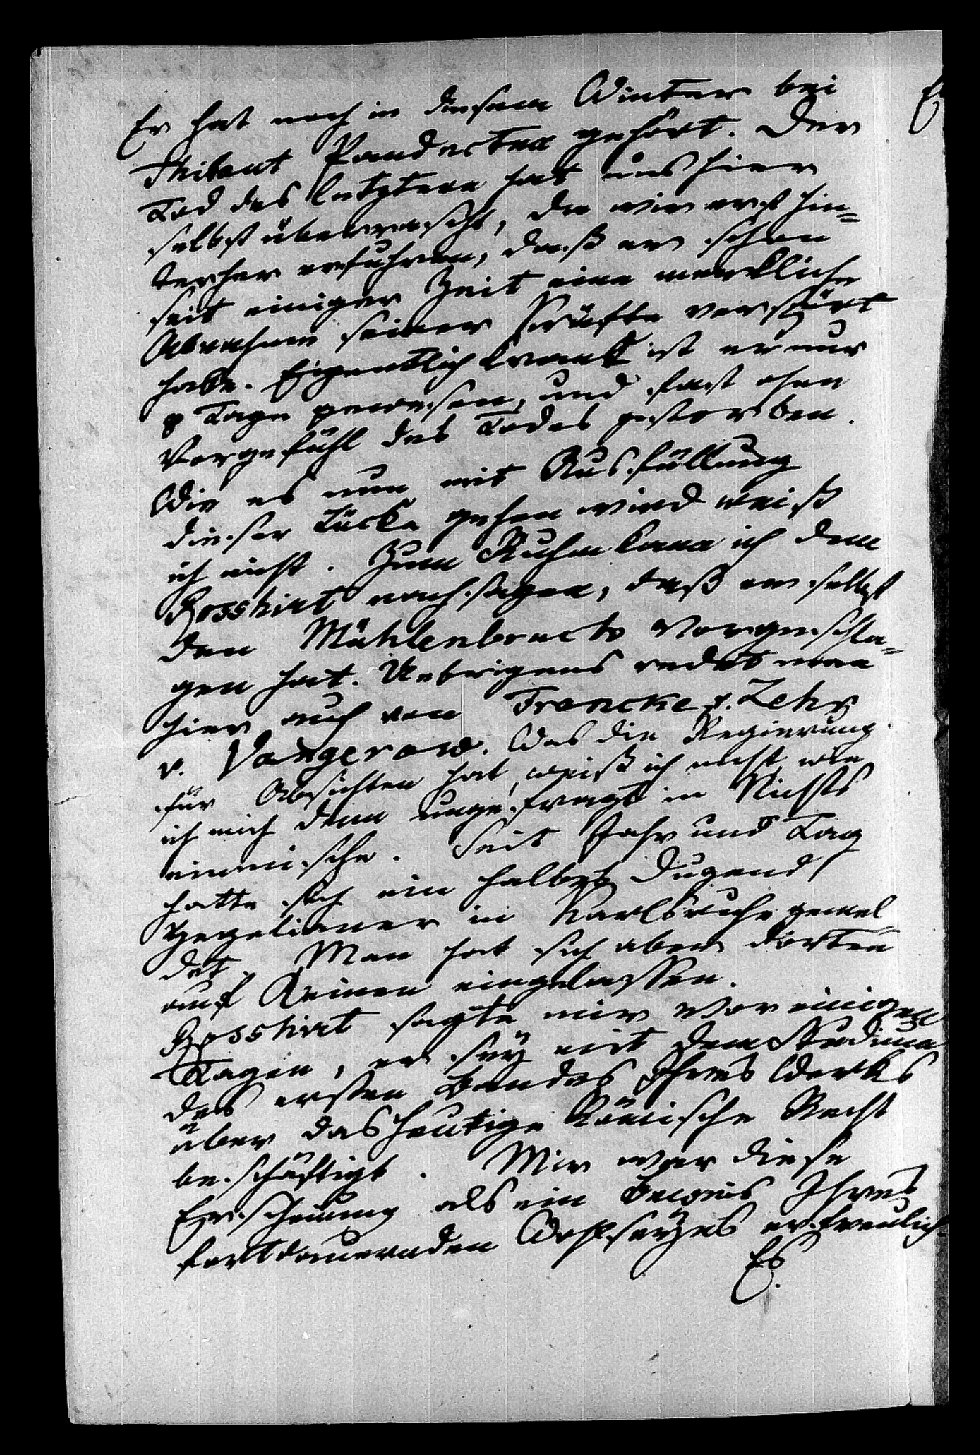 Er hat noch in diesem Winter bei
Thibaut Pandecten gehört. Der
Tod des letztern hat uns hier
selbst überrascht, da wir erst hin-
terher erfuhren, daß er schon
seit einiger Zeit eine merkliche
Abnahme seiner Kräfte verspürt
habe. Eigentlich krank ist er nur
8 Tage gewesen, und fast ohne
Vorgefühl des Todes gestorben.
Wie es nun mit Ausfüllung
dieser Lücke gehen wird weiß
ich nicht. Zum Ruhm kann ich dem
Rosshirt nachsagen, daß er selbst
den Mühlenbruch vorgeschla-
gen hat. Uebrigens redet man
hier auch von Francke
v. Vangerow. Was die Regierung
für Absichten hat, weiß ich nicht, wie
ich mich denn ungefragt in Nichts
einmische. Seit Jahr und Tag
hatte sich ein halbes Dutzend
Hegelianer in Karlsruhe gemel
det. Man hat sich aber dorten
auf Keinen eingelassen.
Rosshirt sagte mir vor einigen
Tagen, er sey mit dem Studium
des ersten Bandes Ihres Werks
über das heutige Römische Recht
beschäftigt. Mir war diese
Erscheinung als ein Beweis Ihres
fortdauernden Wohlseyns erfreulich.
Es